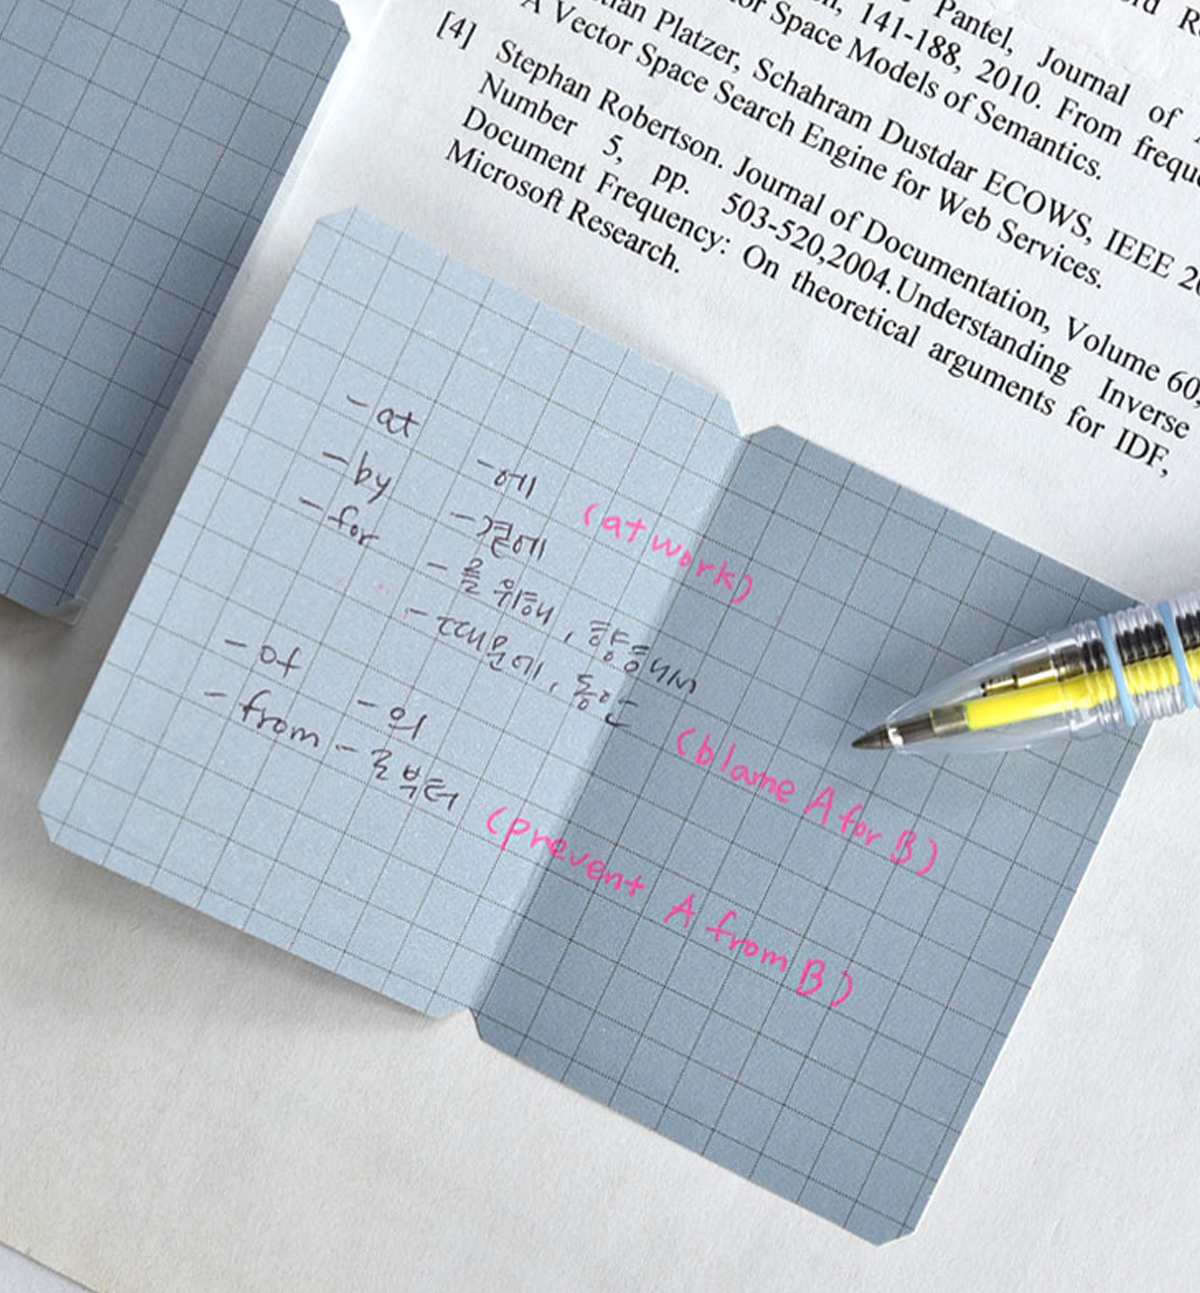 Pantel, Journal of
141-188, 2010. From freque
Space Models of Semantics.
Platzer, Schahram Dustdar ECOWS, IEEE 20
A Vector Space Search Engine for Web Services.
[4] Stephan Robertson. Journal of Documentation, Volume 60,
Number 5, pp. 503-520,2004.Understanding Inverse
Document Frequency: On theoretical arguments for IDF,
Microsoft Research.
-at -에 (at work)
-by -곁에
-for -를 위해, 향해서
-때문에, 동안 (blame A for B)
-of -의
-from -로부터 (prevent A from B)